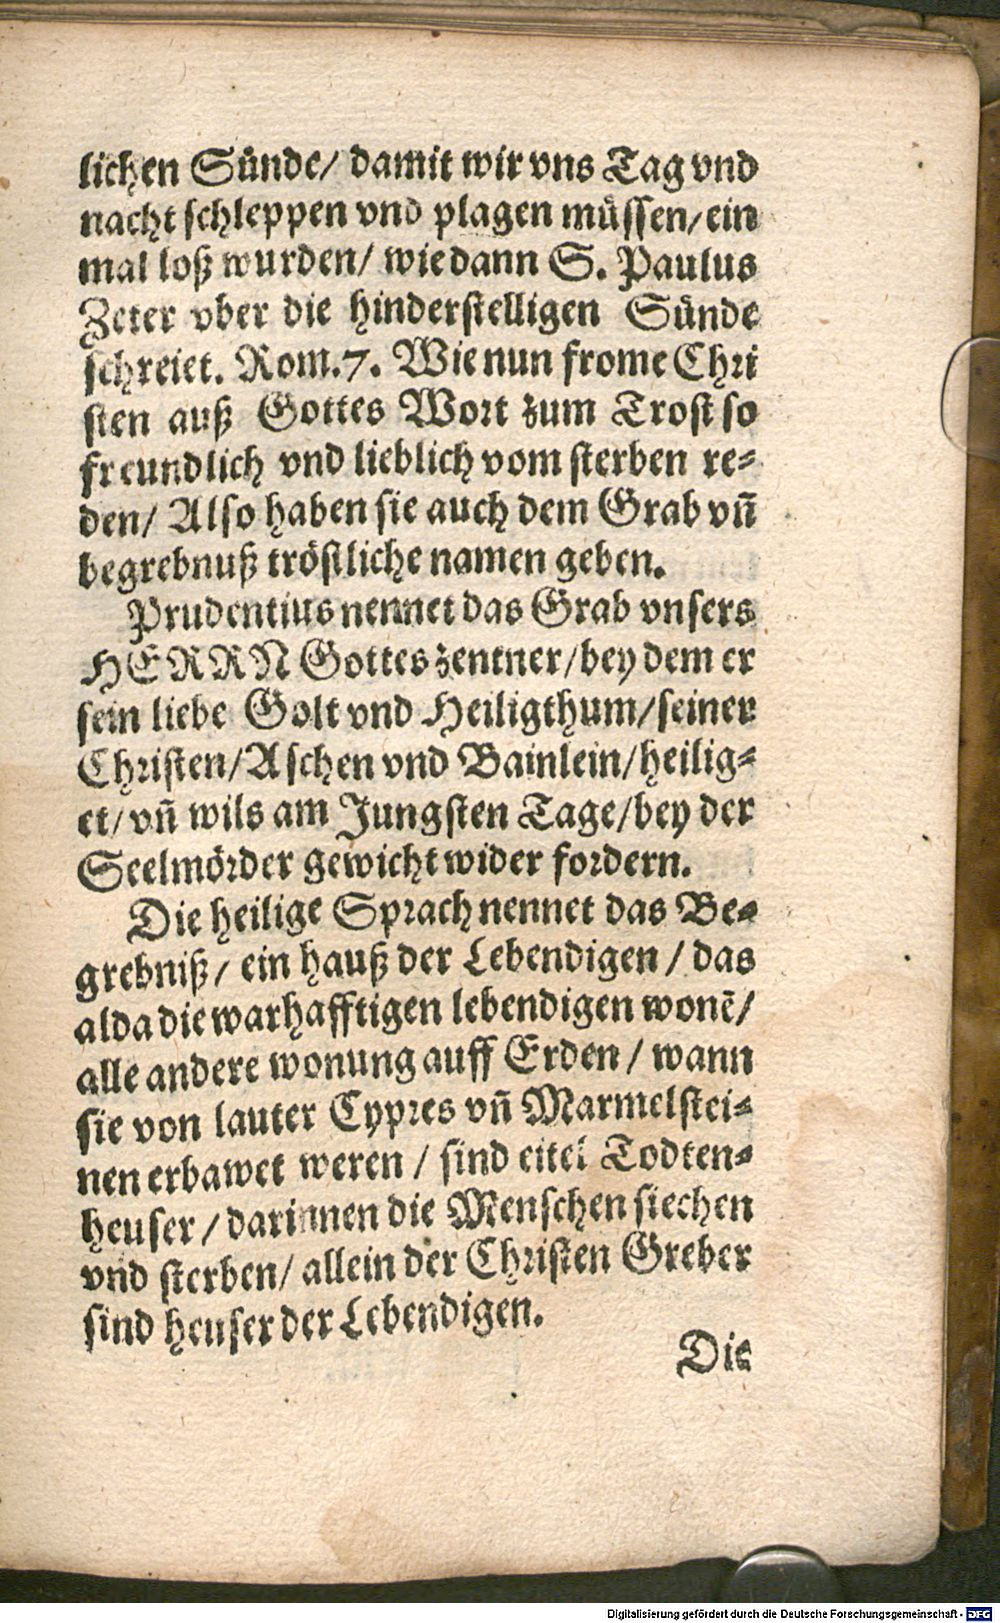 lichen Sünde/ damit wir vns Tag vnd
nacht schleppen vnd plagen müssen/ ein
mal loß wurden/ wie dann S. Paulus
Zeter vber die hinderstelligen Sünde
schreiet. Rom. 7. Wie nun frome Chri
sten auß Gottes Wort zum Trost so
freundlich vnd lieblich vom sterben re-
den/ Also haben sie auch dem Grab vñ
begrebnuß tröstliche namen geben.
Prudentius nennet das Grab vnsers
HERRN Gottes zentner/ bey dem er
sein liebe Golt vnd Heiligthum/ seiner
Christen/ Aschen vnd Bainlein/ heilig-
et/ vñ wils am Jungsten Tage/ bey der
Seelmörder gewicht wider fordern.
Die heilige Sprach nennet das Be-
grebniß/ ein hauß der Lebendigen/ das
alda die warhafftigen lebendigen wonẽ/
alle andere wonung auff Erden/ wann
sie von lauter Cypres vñ Marmelstei-
nen erbawet weren/ sind eitel Todten-
heuser/ darinnen die Menschen siechen
vnd sterben/ allein der Christen Greber
sind heuser der Lebendigen.
Die
Digitalisierung gefördert durch die Deutsche Forschungsgemeinschaft - DFG